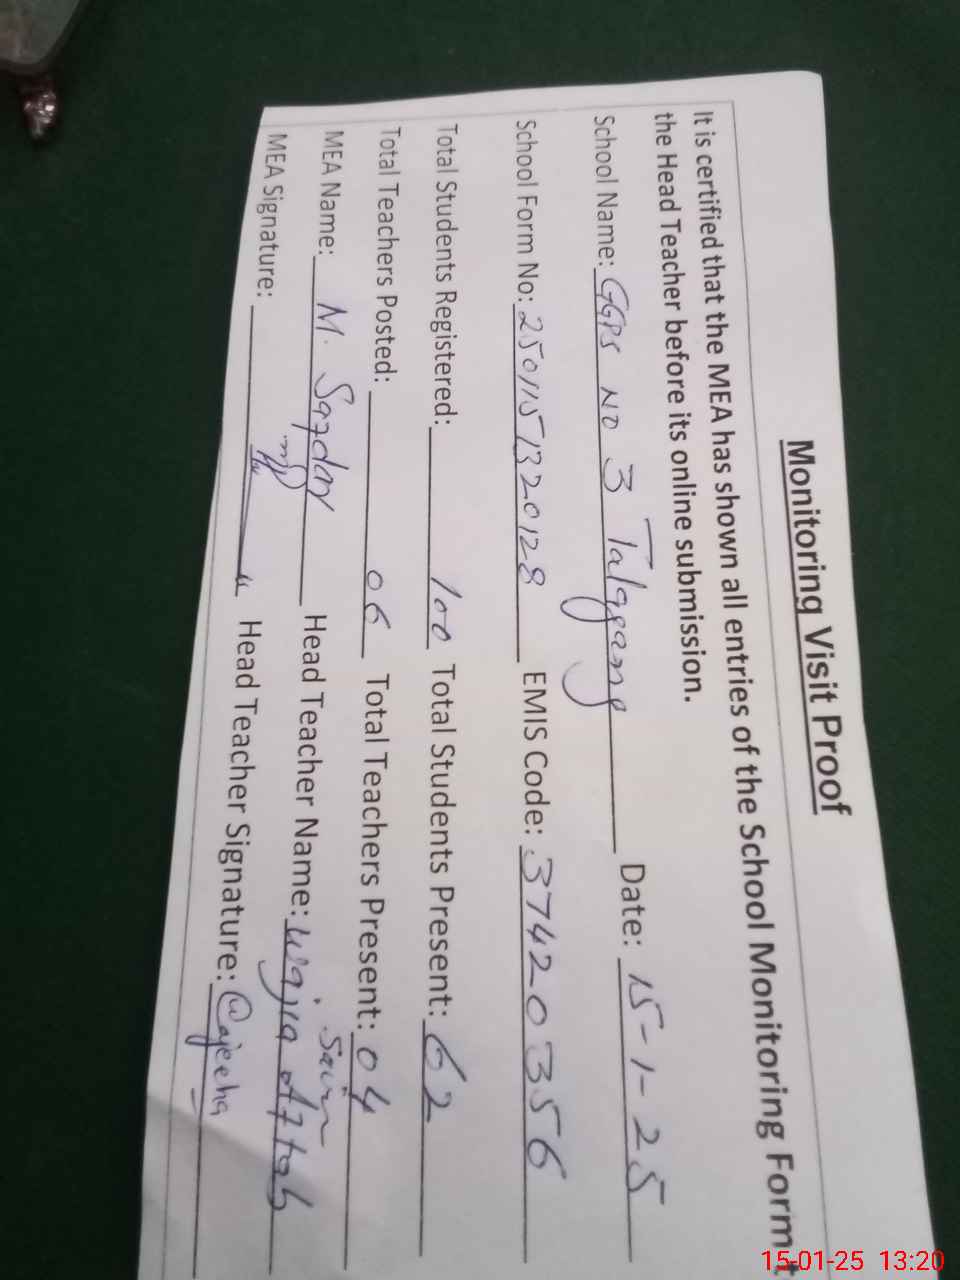 Monitoring Visit Proof
It is certified that the MEA has shown all entries of the School Monitoring Form t
the Head Teacher before its online submission.
School Name: GGPS NO 3 Talagang Date: 15-1-25
School Form No: 2501151320128 EMIS Code: 37420356
Total Students Registered: 100 Total Students Present: 62
Total Teachers Posted: 06 Total Teachers Present: 04
MEA Name: M. Head Teacher Name: Aftab
MEA Signature: Head Teacher Signature: @ajeeha
15-01-25 13:20